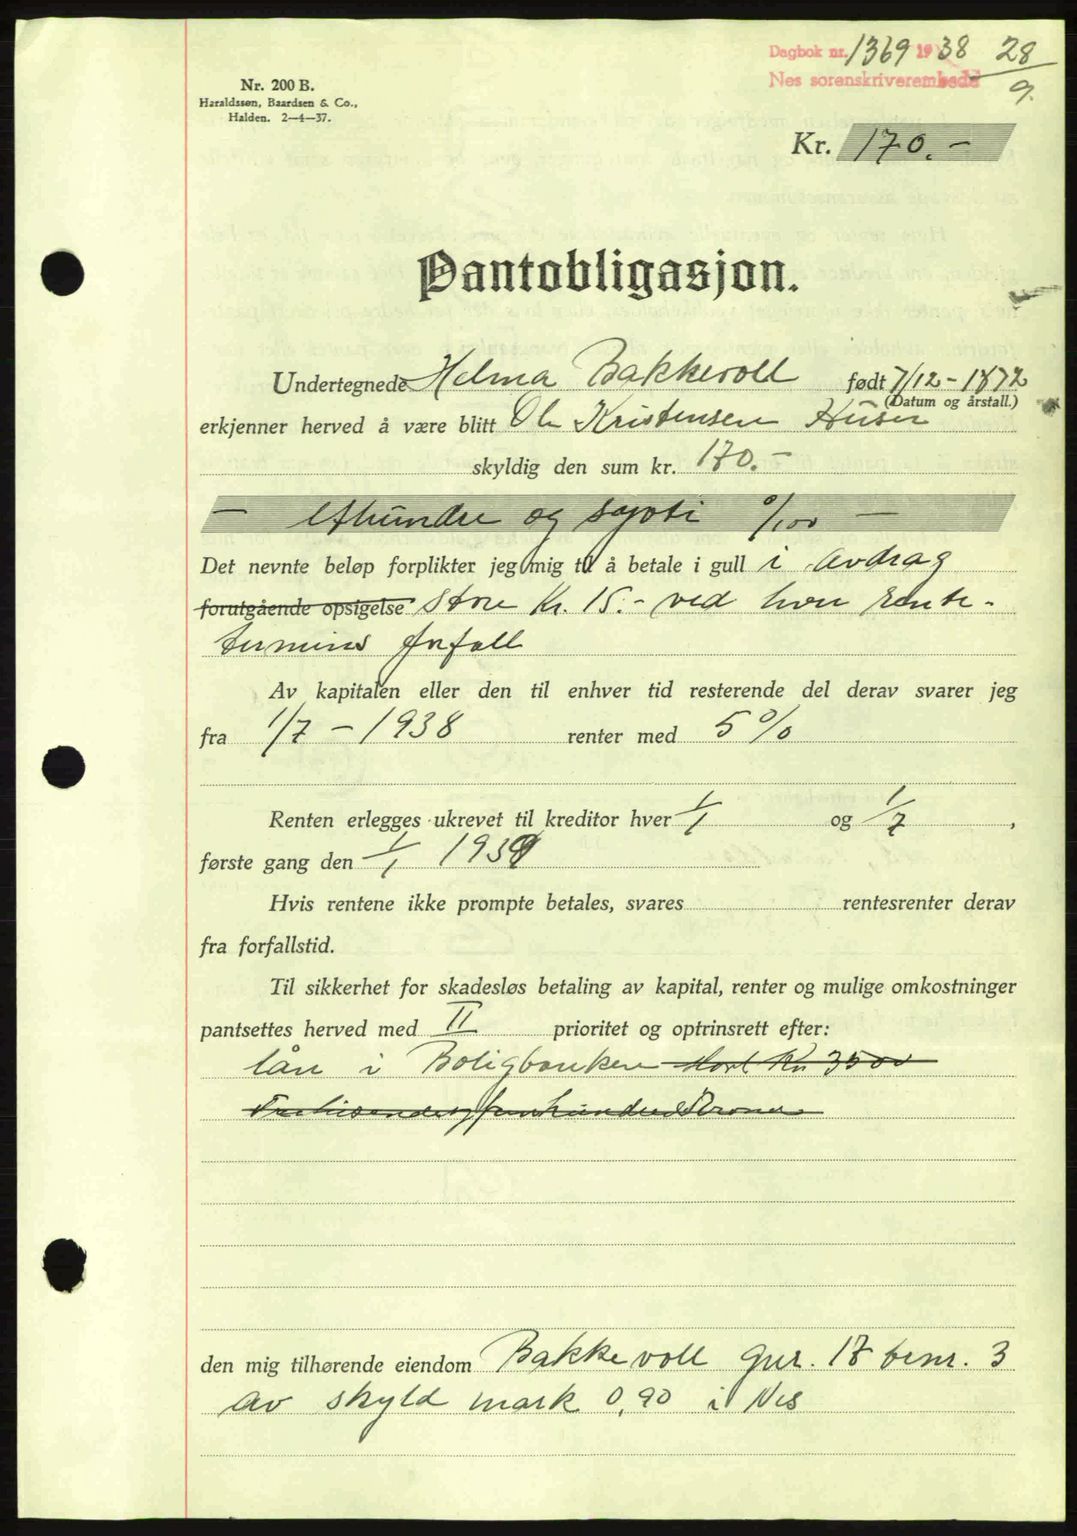 Dagbok nr. 1369 1938 28/9.
Nes sorenskriverembede
Nr. 200 B.
Haraldssen, Baardsen & Co.,
Halden. 2—4—37.
Kr. 170.-
Pantobligasjon.
Undertegnede Helma Bakkevoll født 7/12-1872
(Datum og årstall.)
erkjenner herved å være blitt Ole Kristensen Huser
skyldig den sum kr. 170.-
- etthundre og sytti 0/100 -
Det nevnte beløp forplikter jeg mig til å betale i gull i avdrag
forutgående opsigelse store Kr. 15.- ved hver rente-
termins forfall
Av kapitalen eller den til enhver tid resterende del derav svarer jeg
fra 1/7 - 1938 renter med 5 %
Renten erlegges ukrevet til kreditor hver 1/1 og 1/7,
første gang den 1/1 1939
Hvis rentene ikke prompte betales, svares rentesrenter derav
fra forfallstid.
Til sikkerhet for skadesløs betaling av kapital, renter og mulige omkostninger
pantsettes herved med II prioritet og optrinsrett efter:
lån i Boligbanken stort Kr 3500
Tretusenogfemhundrekroner
den mig tilhørende eiendom Bakkevoll gnr. 17 bnr. 3
av skyld mark 0,90 i Nes